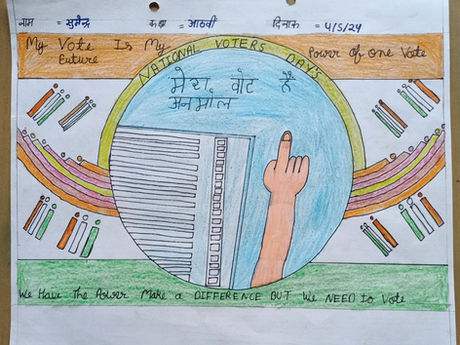 नाम = सुरेन्द्र कक्षा = आठवी दिनांक = 4/5/24
My Vote Is My
Future
NATIONAL VOTERS DAYS
Power of one Vote
मेरा वोट है
अनमोल
We Have The Power Make a DIFFERENCE BUT We NEED to Vote